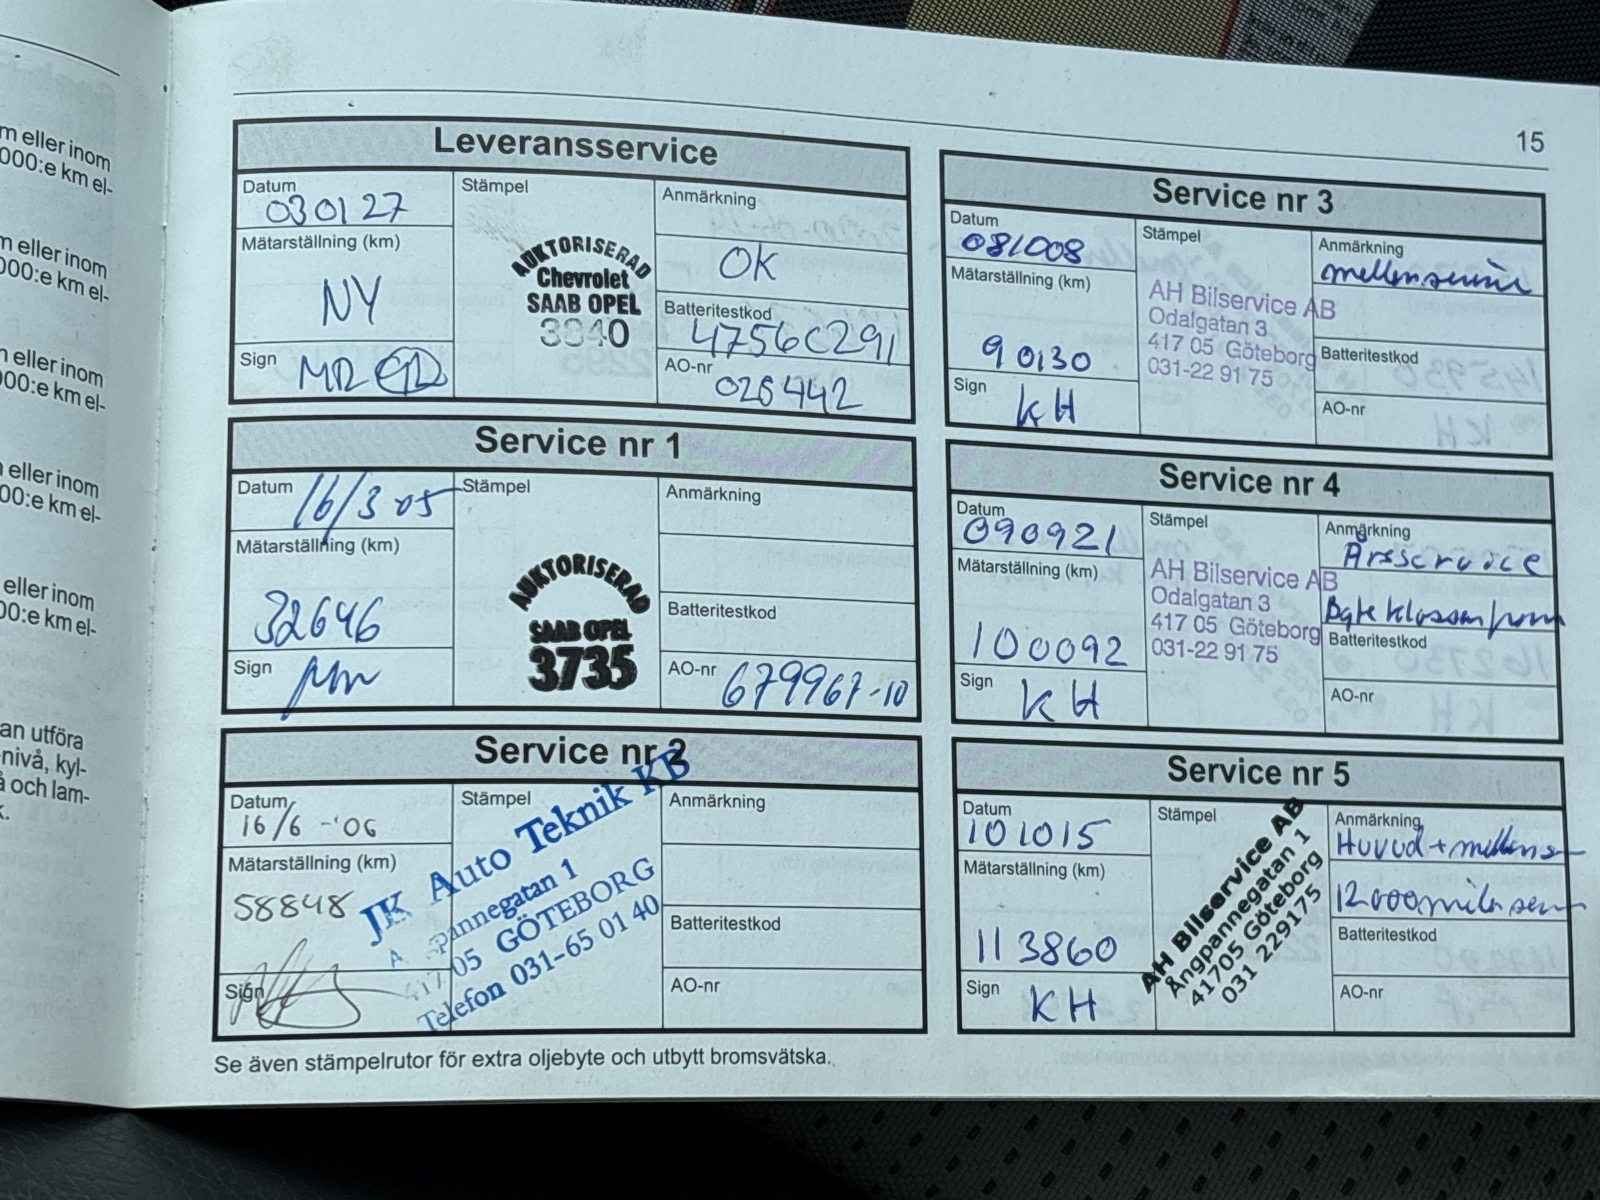 m eller inom
000:e km el-
m eller inom
000:e km el-
n eller inom
000:e km el-
eller inom
00:e km el-
eller inom
00:e km el-
an utföra
nivå, kyl-
å och lam-
k.
15
Leveransservice
Datum
030127
Mätarställning (km)
NY
Sign
MR GD
Stämpel
AUKTORISERAD
Chevrolet
SAAB OPEL
3840
Anmärkning
OK
Batteritestkod
4756C291
AO-nr
026442
Service nr 1
Datum
16/3 05
Mätarställning (km)
32646
Sign
Stämpel
AUKTORISERAD
SAAB OPEL
3735
Anmärkning
Batteritestkod
AO-nr
679967-10
Service nr 2
Datum
16/6 -'06
Mätarställning (km)
58848
Sign
Stämpel
JK Auto Teknik KB
A spannegatan 1
417 05 GÖTEBORG
Telefon 031-65 01 40
Anmärkning
Batteritestkod
AO-nr
Se även stämpelrutor för extra oljebyte och utbytt bromsvätska.
Service nr 3
Datum
081008
Mätarställning (km)
90130
Sign
KH
Stämpel
AH Bilservice AB
Odalgatan 3
417 05 Göteborg
031-22 91 75
Anmärkning
mellanservice
Batteritestkod
AO-nr
Service nr 4
Datum
090921
Mätarställning (km)
100092
Sign
KH
Stämpel
AH Bilservice AB
Odalgatan 3
417 05 Göteborg
031-22 91 75
Anmärkning
Årsservice
Byte klossar fram
Batteritestkod
AO-nr
Service nr 5
Datum
101015
Mätarställning (km)
113860
Sign
KH
Stämpel
AH Bilservice AB
Ångpannegatan 1
41705 Göteborg
031 229175
Anmärkning
Huvud + mellans
12000 mila serv
Batteritestkod
AO-nr